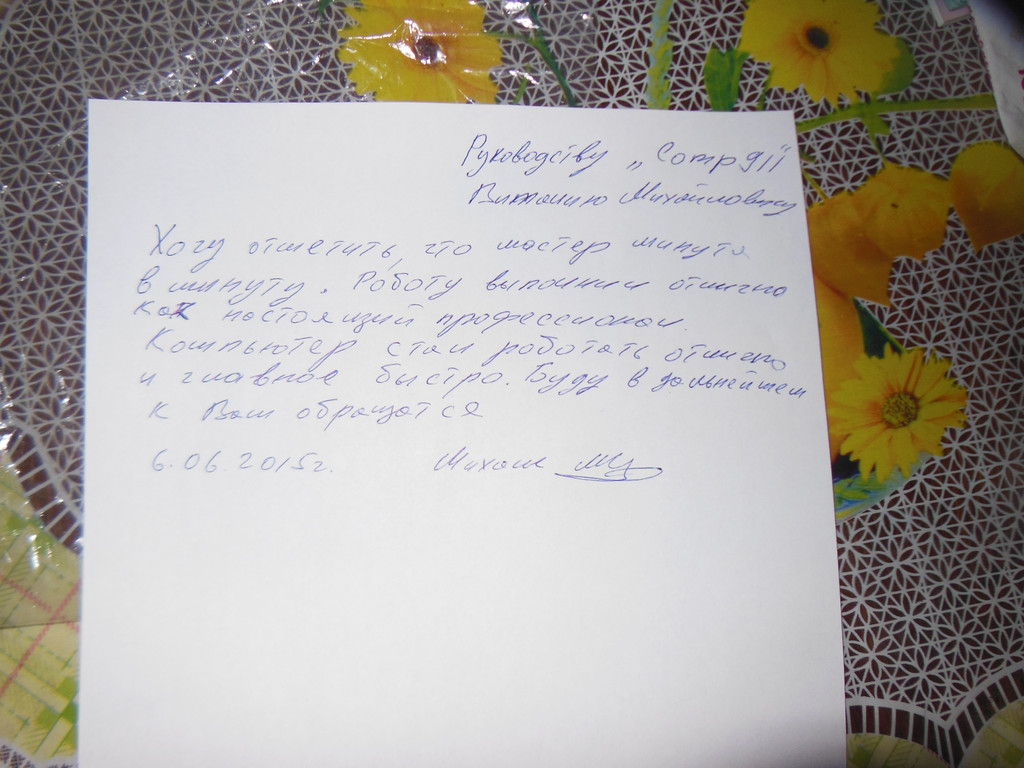 Руководству „Comp911"
Виталию Михайловичу
Хочу отметить, что мастер минута
в минуту. Работу выполнил отлично
как настоящий профессионал.
Компьютер стал работать отлично
и главное быстро. Буду в дальнейшем
к Вам обращатся
6.06.2015г. Михаил